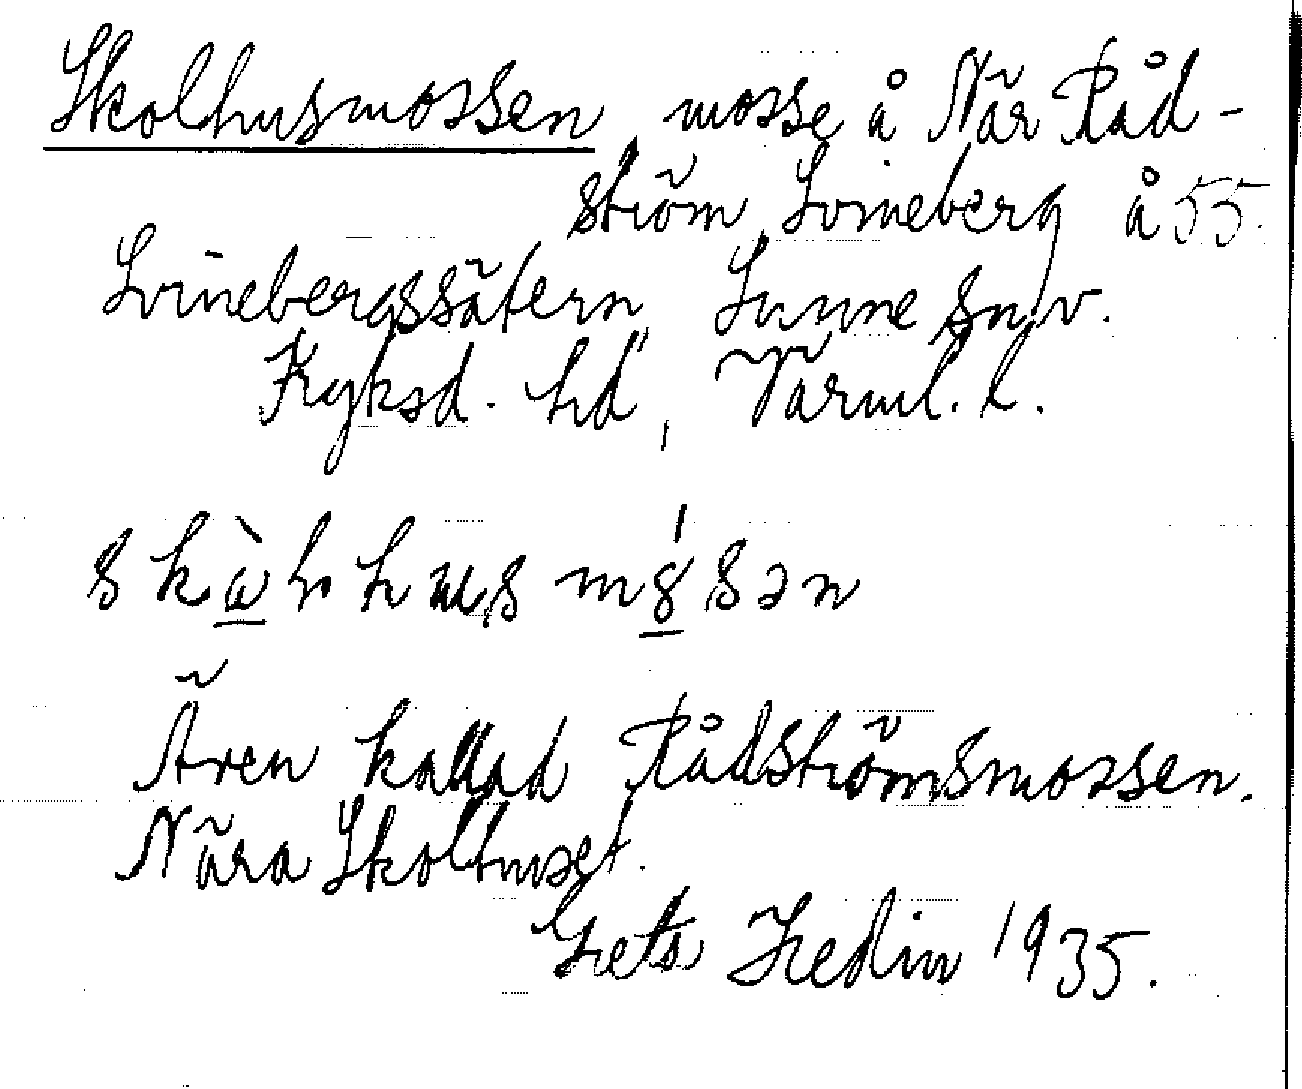 Skolhusmossen, mosse å När Råd-
ström, Svineberg å 55.
Svinebergssätern, Sunne sn, v.
Fryksd. hd, Värml. l.
Även kallad Rådströmsmossen.
Nära Skolhuset.
Greta Hedin 1935.